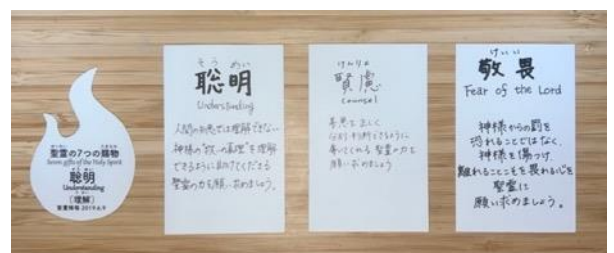 せいれい たまもの
聖霊の7つの賜物
Seven gifts of the Holy Spirit
そうめい
聡明
Understanding
りかい
(理解)
聖霊降臨 2019.6.9
そう めい
聡明
Understanding
人間の知恵では理解できない
神様の"救いの真理"を理解
できるように助けてくださる
聖霊の力を願い求めましょう。
けんりょ
賢慮
counsel
善悪を正しく
導いてくれる 聖霊の力を
願い求めましょう
けいい
敬畏
Fear of the Lord
神様からの罰を
恐れることではなく、
神様を傷つけ、
離れることを畏れる心を
聖霊に
願い求めましょう。